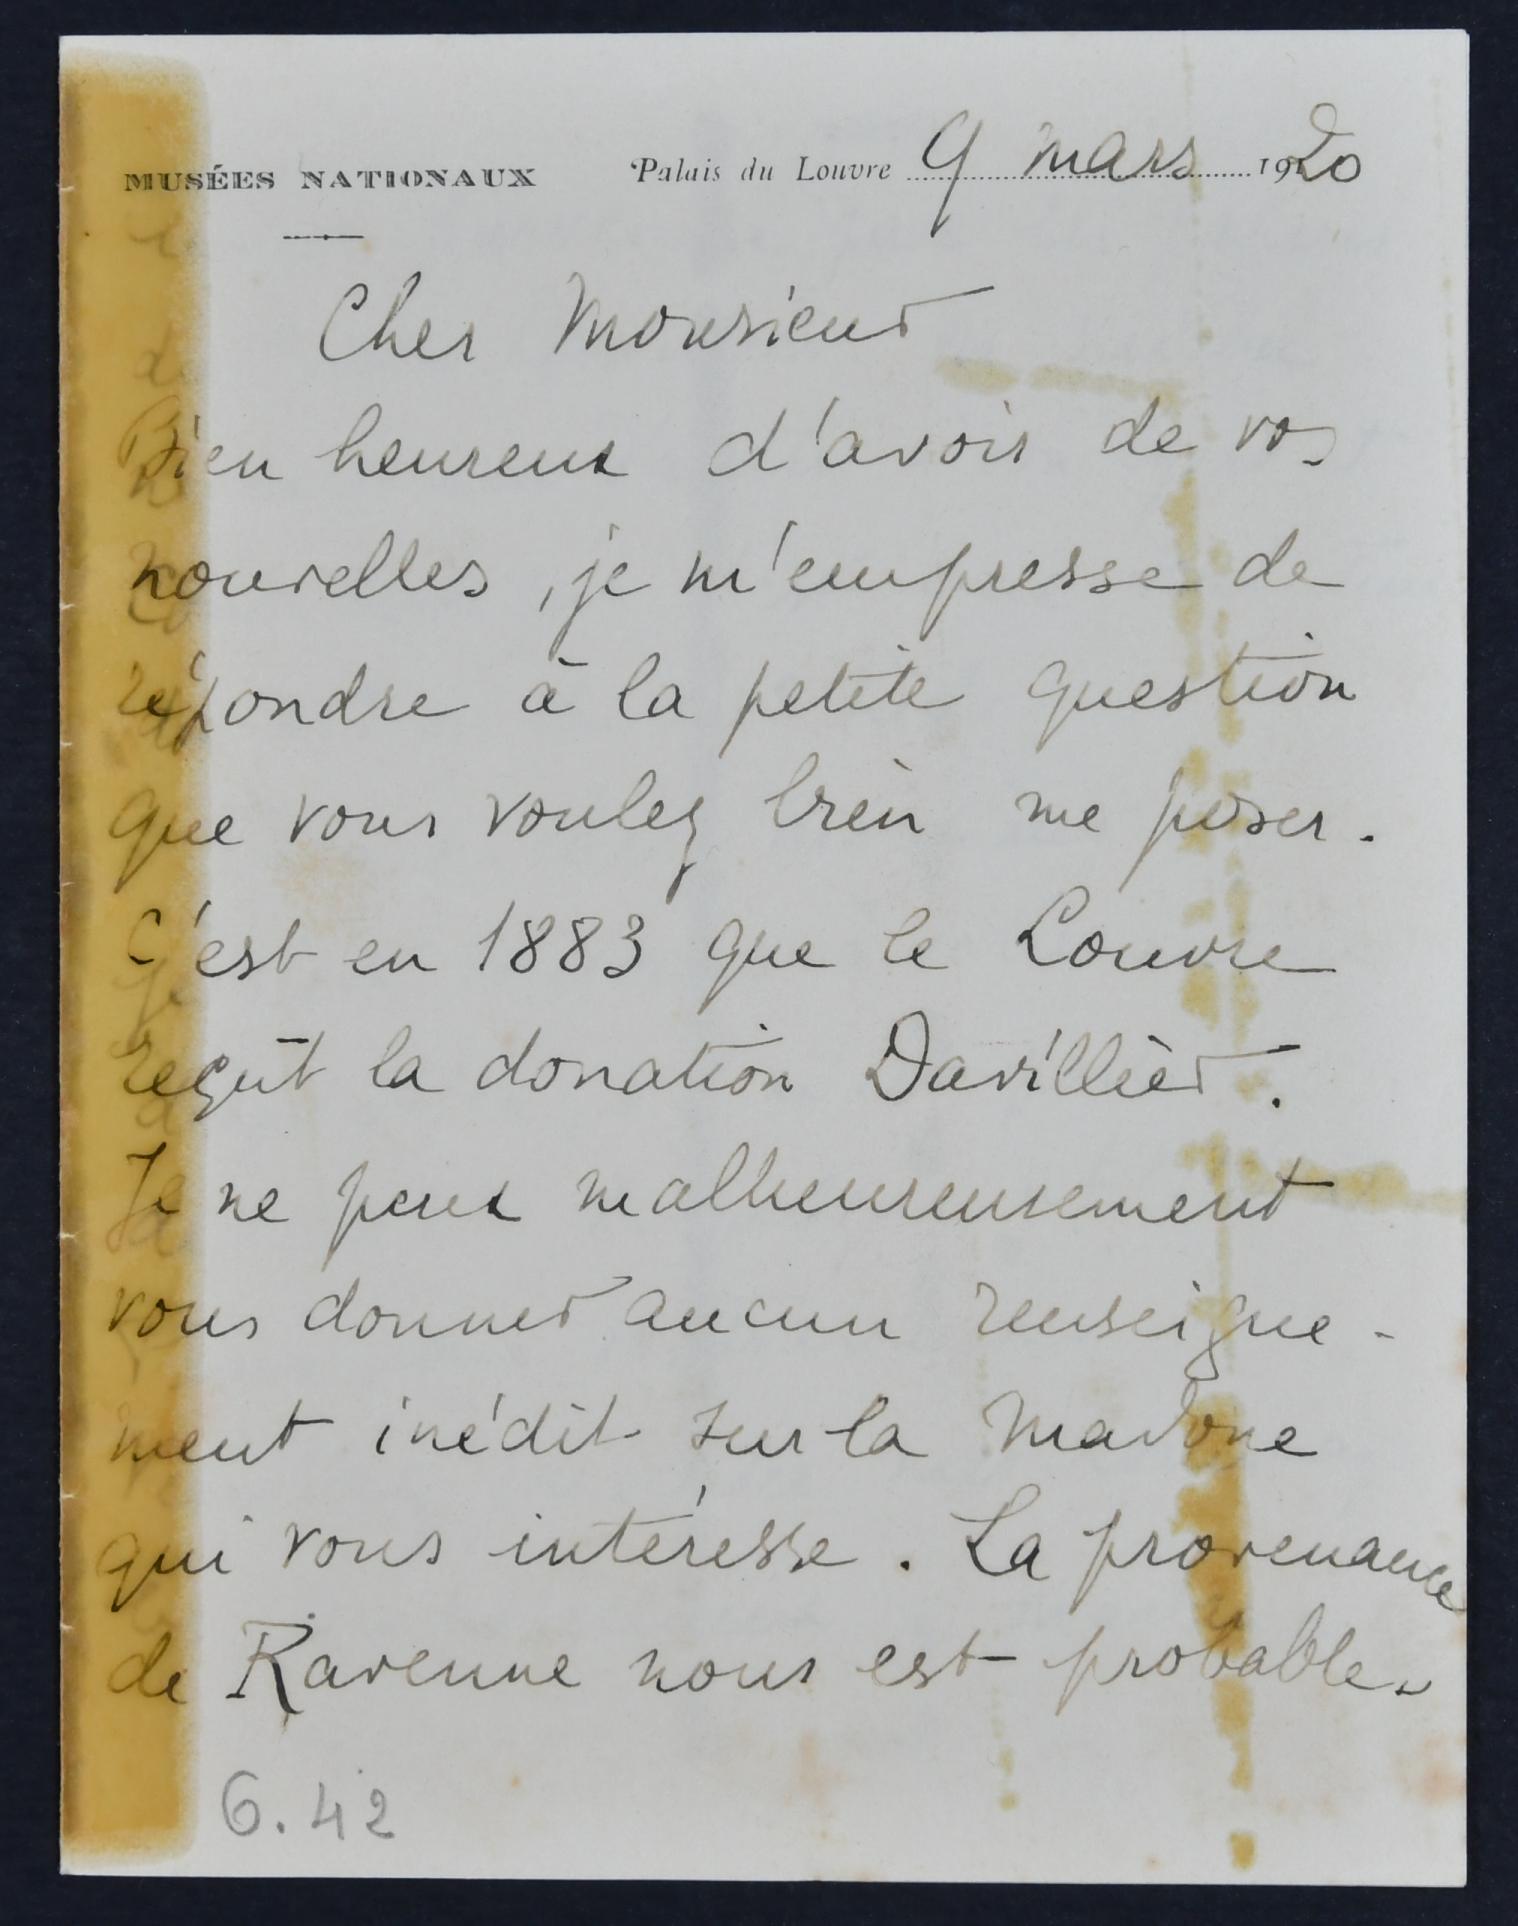 MUSÉES NATIONAUX Palais du Louvre 9 mars 1920
Cher Monsieur
Bien heureux d'avoir de vos
nouvelles, je m'empresse de
répondre à la petite question
que vous voulez bien me poser.
C'est en 1883 que le Louvre
reçut la donation Davillier.
Je ne peux malheureusement
vous donner aucun renseigne-
ment inédit sur la Madone
qui vous intéresse. La provenance
de Ravenne nous est probable.
6.42